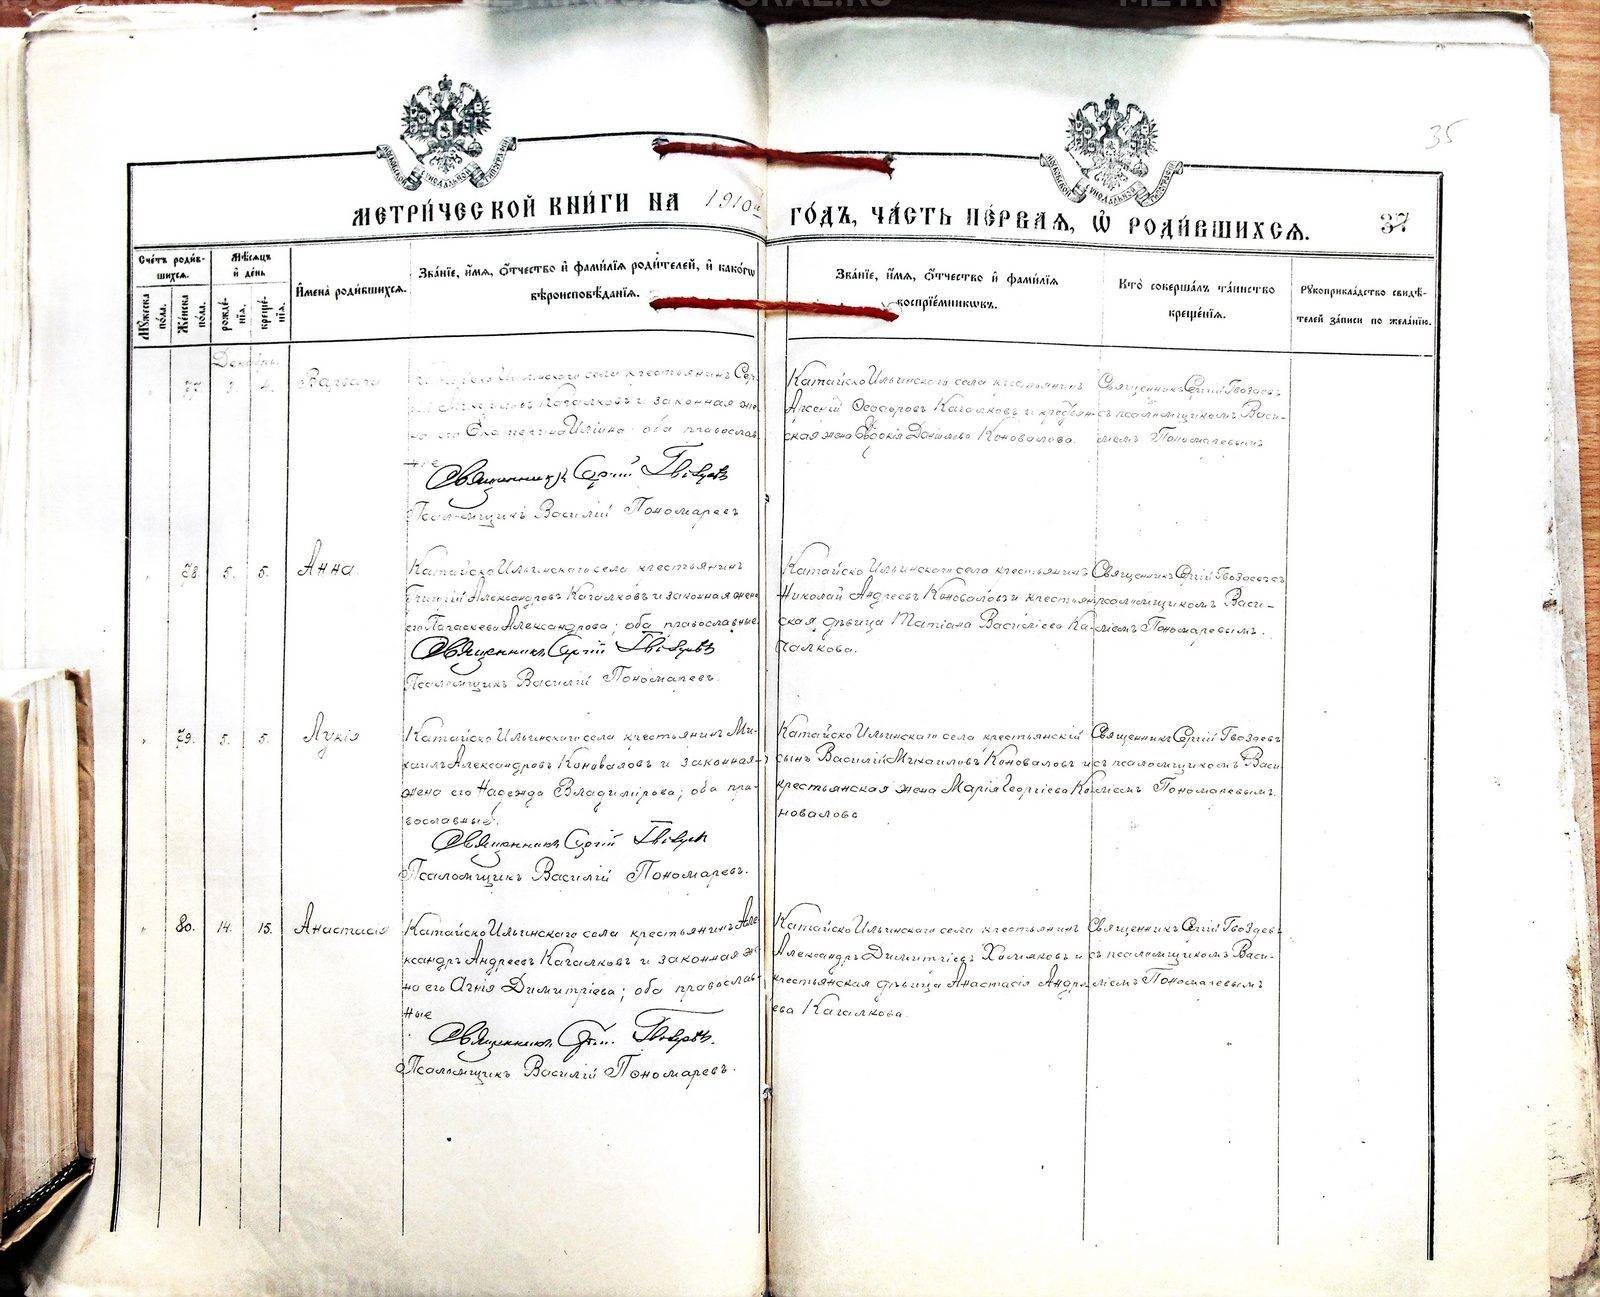 35
МОСКОВСКОЙ СѴНОДАЛЬНОЙ ТИПОГРАФІИ
МЕТРИ́ЧЕСКОЙ КНИ́ГИ НА 1910й ГО́ДЪ, ЧА́СТЬ ПЕ́РВАЯ, Ѽ РОДИ́ВШИХСЯ. 37
Сче́тъ роди́вшихся.
Мѣ́сяцъ и́ де́нь
И́мена роди́вшихся.
Зва́нїе, и́мя, ѻ́тчество и́ фами́лїя роди́телей, и́ како́гѡ
вѣроисповѣ́данїя.
Зва́нїе, и́мя, ѻ́тчество и́ фами́лїя
воспрїе́мникѡвъ.
Кто̀ соверша́лъ та́инство
креще́нїя.
Рꙋкоприкла́дство свидѣ́телей за́писи по жела́нїю.
Мꙋ́жеска по́ла.
Же́нска по́ла.
рожде́нїя.
креще́нїя.
Декабрь
77. 3. 4. Варвара
Ильинскаго села крестьянинъ Сер-
Качалковъ и законная же-
на его Екатерина Иліина; оба православ-
ные
Священникъ Сергій Гвоздевъ
Псаломщикъ Василій Пономаревъ
Катайско Ильинскаго села крестьянинъ
Арсеній Ѳеодоровъ Качалковъ и крестьян-
ская жена Евдокія Данилова Коновалова.
Священникъ Сергій Гвоздевъ
съ псаломщикомъ Васи-
ліемъ Пономаревымъ
78. 5. 5. Анна.
Катайско Ильинскаго села крестьянинъ
Григорій Александровъ Качалковъ и законная жена
его Параскева Александрова; оба православные
Священникъ Сергій Гвоздевъ
Псаломщикъ Василій Пономаревъ.
Катайско Ильинскаго села крестьянинъ
Николай Андреевъ Коноваловъ и крестьян-
ская дѣвица Татіана Василіева Ка-
чалкова.
Священникъ Сергій Гвоздевъ съ
псаломщикомъ Васи-
ліемъ Пономаревымъ.
79. 5. 5. Лукія
Катайско Ильинскаго села крестьянинъ Ми-
хаилъ Александровъ Коноваловъ и законная
жена его Надежда Владимірова; оба пра-
вославные.
Священникъ Сергій Гвоздевъ
Псаломщикъ Василій Пономаревъ.
Катайско Ильинскаго села крестьянскій
сынъ Василій Михаиловъ Коноваловъ и
крестьянская жена Марія Георгіева Ко-
новалова
Священникъ Сергій Гвоздевъ
съ псаломщикомъ Васи-
ліемъ Пономаревымъ.
80. 14. 15. Анастасія
Катайско Ильинскаго села крестьянинъ Але-
ксандръ Андреевъ Качалковъ и законная же-
на его Агнія Димитріева; оба православ-
ные
Священникъ Сергій Гвоздевъ.
Псаломщикъ Василій Пономаревъ.
Катайско Ильинскаго села крестьянинъ
Александръ Димитріевъ Холмяковъ и
крестьянская дѣвица Анастасія Андре-
ева Качалкова.
Священникъ Сергій Гвоздевъ
съ псаломщикомъ Васи-
ліемъ Пономаревымъ